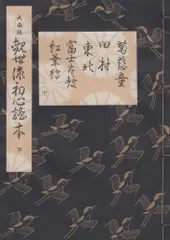 大成版
観世流初心謡本
下
菊慈童
田村
東北
富士太鼓
紅葉狩
下